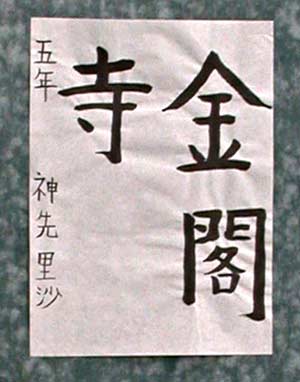 金閣
寺
五年 神先里沙